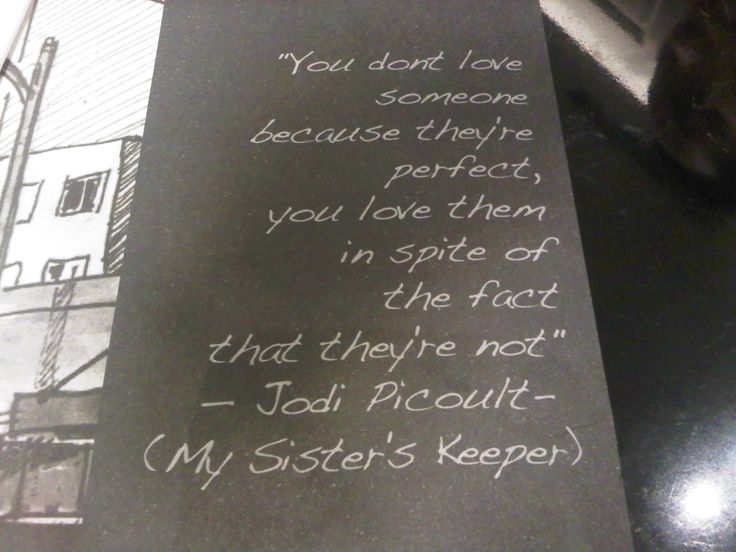 "You dont love
someone
because they're
perfect,
you love them
in spite of
the fact
that they're not"
– Jodi Picoult–
(My Sister's Keeper)